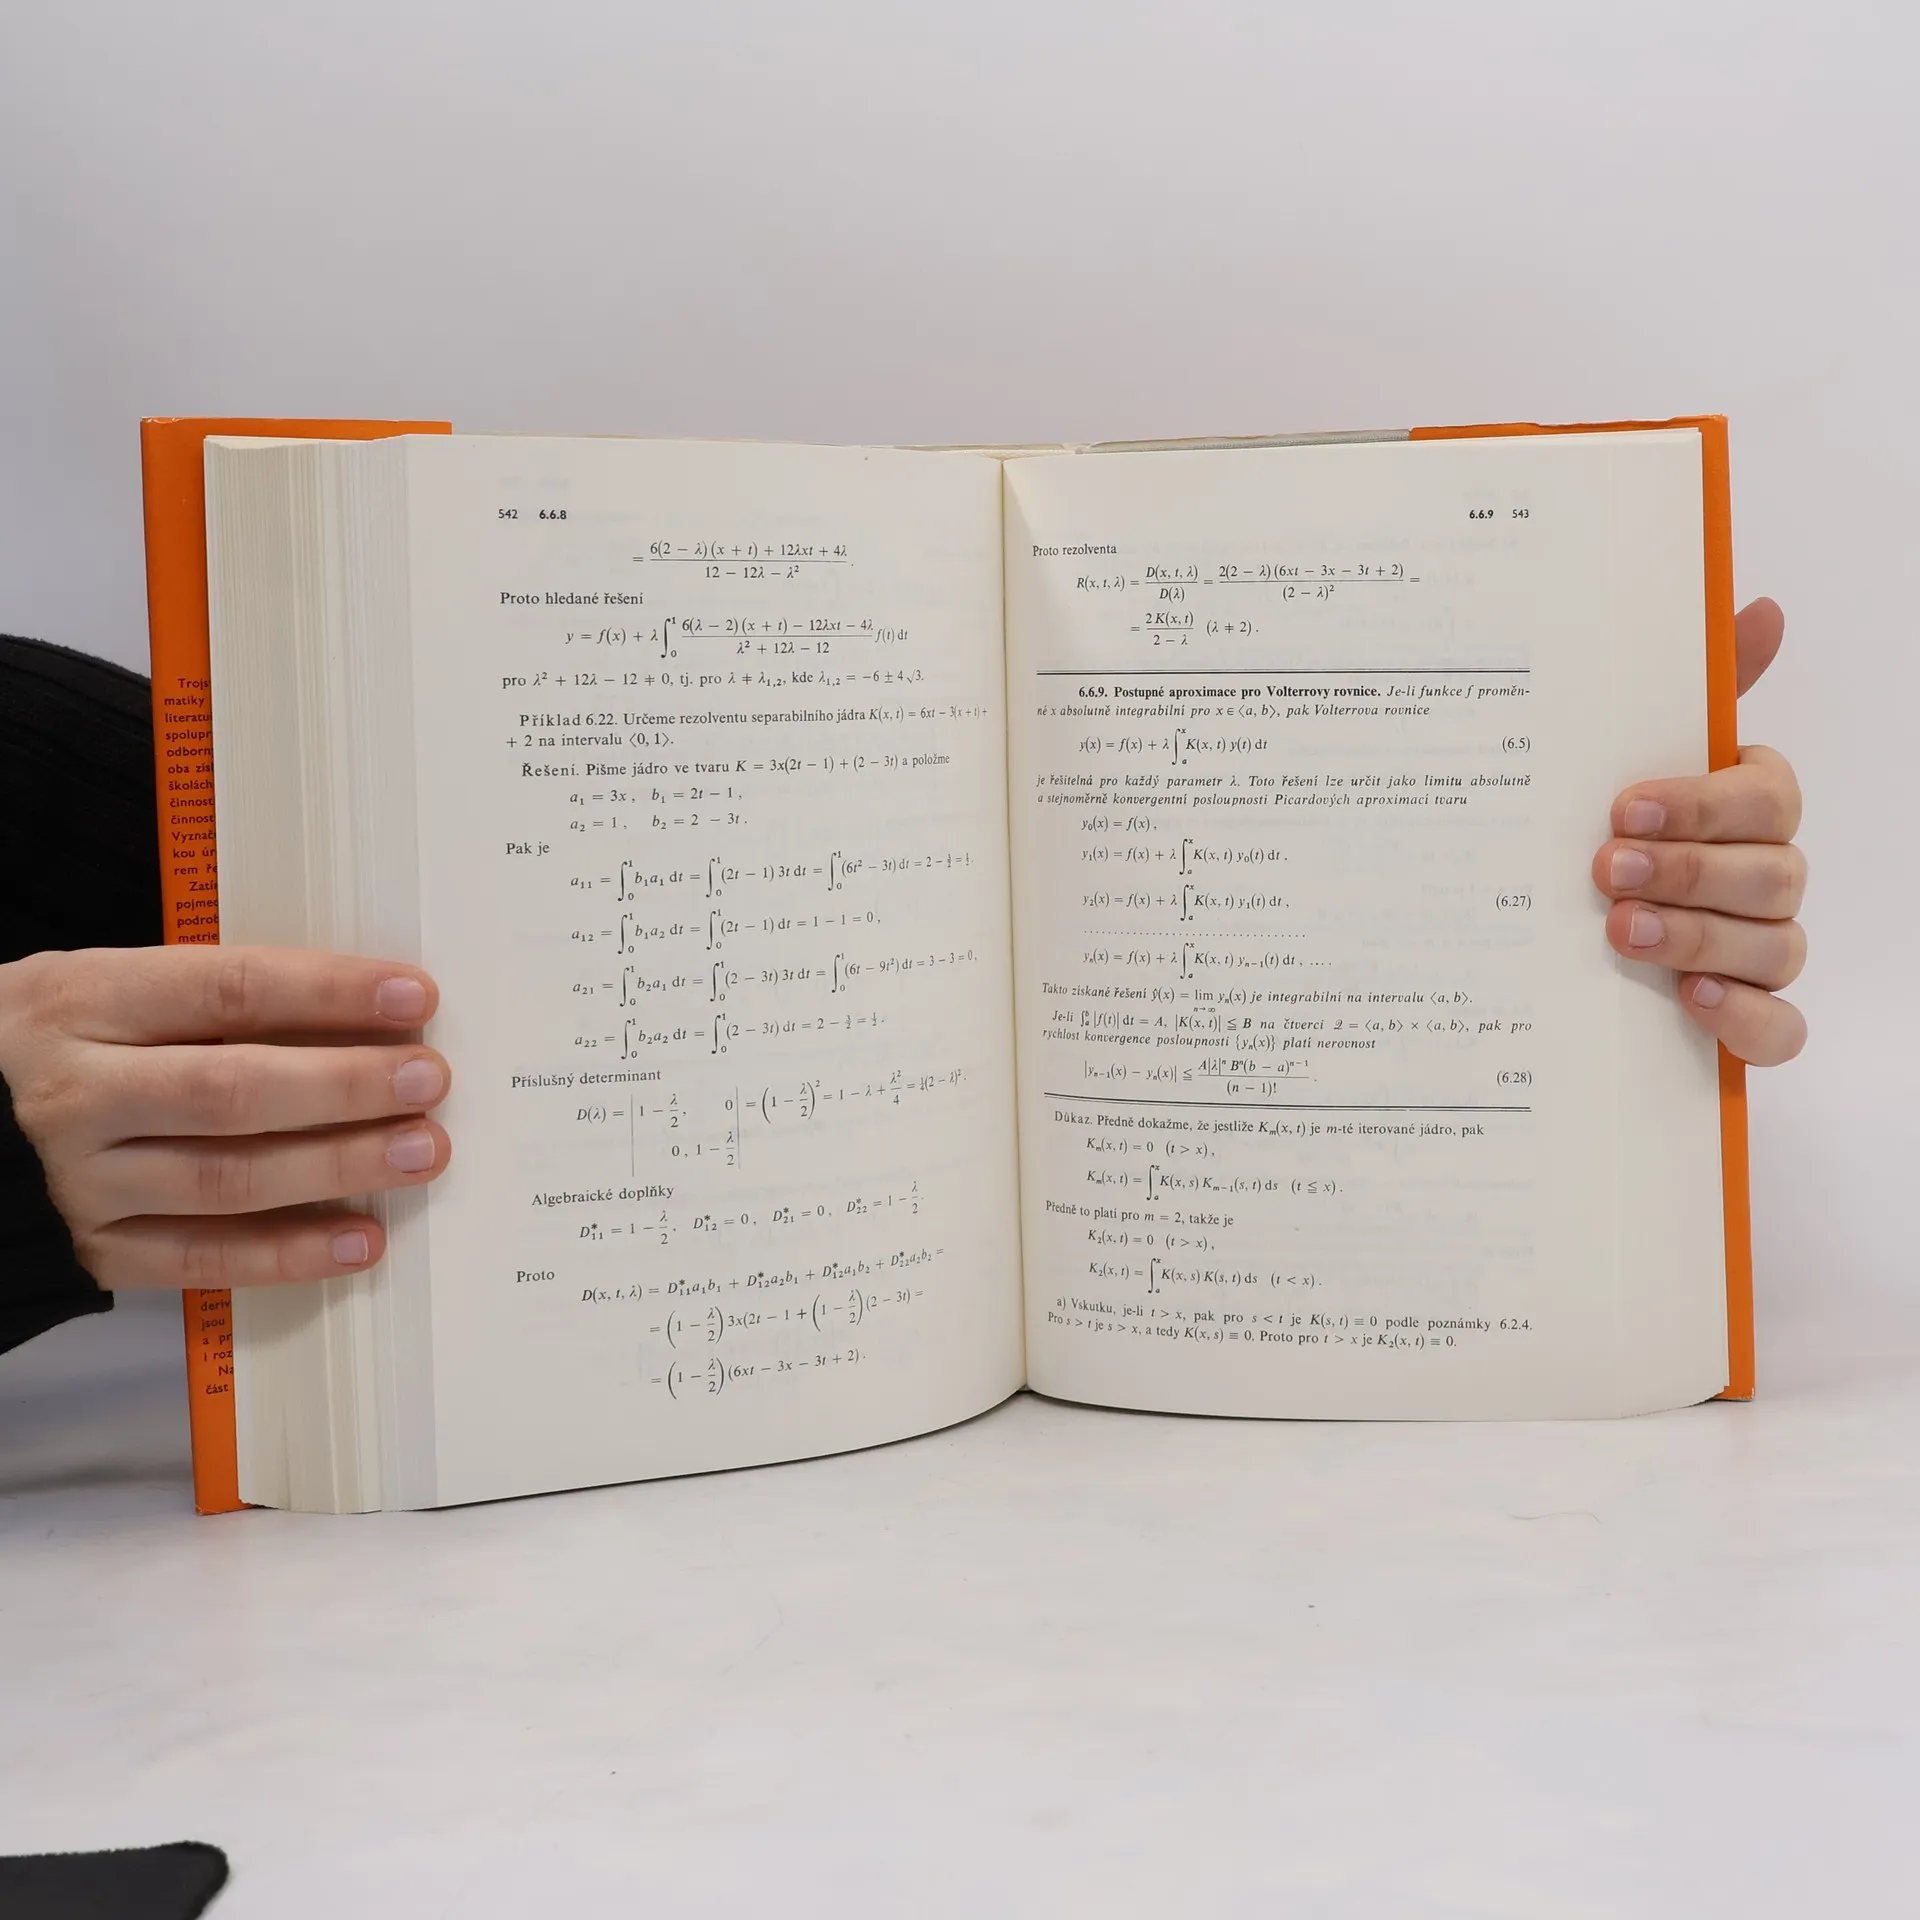 Trojs
matiky
literatu
spolupr
odborn
oba zís
školách
činnost
činnost
Vyznač
kou úr
rem ře
Zatí
pojmec
podrob
metrie
deriv
jsou
a pr
i roz
Na
část
542 6.6.8
= 6(2 − λ)(x + t) + 12λxt + 4λ / 12 − 12λ − λ² .
Proto hledané řešení
y = f(x) + λ ∫₀¹ 6(λ − 2)(x + t) − 12λxt − 4λ / λ² + 12λ − 12 f(t) dt
pro λ² + 12λ − 12 ≠ 0, tj. pro λ ≠ λ₁,₂, kde λ₁,₂ = −6 ± 4√3.
Příklad 6.22. Určeme rezolventu separabilního jádra K(x, t) = 6xt − 3(x + t) +
+ 2 na intervalu ⟨0, 1⟩.
Řešení. Pišme jádro ve tvaru K = 3x(2t − 1) + (2 − 3t) a položme
a₁ = 3x, b₁ = 2t − 1,
a₂ = 1, b₂ = 2 − 3t.
Pak je
a₁₁ = ∫₀¹ b₁a₁ dt = ∫₀¹ (2t − 1) 3t dt = ∫₀¹ (6t² − 3t) dt = 2 − 3/2 = 1/2.
a₁₂ = ∫₀¹ b₁a₂ dt = ∫₀¹ (2t − 1) dt = 1 − 1 = 0,
a₂₁ = ∫₀¹ b₂a₁ dt = ∫₀¹ (2 − 3t) 3t dt = ∫₀¹ (6t − 9t²) dt = 3 − 3 = 0,
a₂₂ = ∫₀¹ b₂a₂ dt = ∫₀¹ (2 − 3t) dt = 2 − 3/2 = 1/2.
Příslušný determinant
D(λ) = | 1 − λ/2, 0 | = (1 − λ/2)² = 1 − λ + λ²/4 = ¼(2 − λ)².
| 0, 1 − λ/2 |
Algebraické doplňky
D*₁₁ = 1 − λ/2, D*₁₂ = 0, D*₂₁ = 0, D*₂₂ = 1 − λ/2.
Proto
D(x, t, λ) = D*₁₁a₁b₁ + D*₁₂a₂b₁ + D*₁₂a₁b₂ + D*₂₂a₂b₂ =
= (1 − λ/2) 3x(2t − 1 + (1 − λ/2)(2 − 3t) =
= (1 − λ/2)(6xt − 3x − 3t + 2).
6.6.9 543
Proto rezolventa
R(x, t, λ) = D(x, t, λ) / D(λ) = 2(2 − λ)(6xt − 3x − 3t + 2) / (2 − λ)² =
= 2K(x, t) / 2 − λ (λ ≠ 2).
6.6.9. Postupné aproximace pro Volterrovy rovnice. Je-li funkce f proměn-
né x absolutně integrabilní pro x ∈ ⟨a, b⟩, pak Volterrova rovnice
y(x) = f(x) + λ ∫ₐˣ K(x, t) y(t) dt (6.5)
je řešitelná pro každý parametr λ. Toto řešení lze určit jako limitu absolutně
a stejnoměrně konvergentní posloupnosti Picardových aproximací tvaru
y₀(x) = f(x),
y₁(x) = f(x) + λ ∫ₐˣ K(x, t) y₀(t) dt.
y₂(x) = f(x) + λ ∫ₐˣ K(x, t) y₁(t) dt, (6.27)
................................
yₙ(x) = f(x) + λ ∫ₐˣ K(x, t) yₙ₋₁(t) dt, ....
Takto získané řešení ŷ(x) = lim n→∞ yₙ(x) je integrabilní na intervalu ⟨a, b⟩.
Je-li ∫ₐᵇ |f(t)| dt = A, |K(x, t)| ≦ B na čtverci 𝒬 = ⟨a, b⟩ × ⟨a, b⟩, pak pro
rychlost konvergence posloupnosti {yₙ(x)} platí nerovnost
|yₙ₋₁(x) − yₙ(x)| ≦ A|λ|ⁿ Bⁿ(b − a)ⁿ⁻¹ / (n − 1)! . (6.28)
Důkaz. Předně dokažme, že jestliže Kₘ(x, t) je m-té iterované jádro, pak
Kₘ(x, t) = 0 (t > x),
Kₘ(x, t) = ∫ₐˣ K(x, s) Kₘ₋₁(s, t) ds (t ≦ x).
Předně to platí pro m = 2, takže je
K₂(x, t) = 0 (t > x),
K₂(x, t) = ∫ₐˣ K(x, s) K(s, t) ds (t < x).
a) Vskutku, je-li t > x, pak pro s < t je K(s, t) ≡ 0 podle poznámky 6.2.4.
Pro s > t je s > x, a tedy K(x, s) ≡ 0. Proto pro t > x je K₂(x, t) ≡ 0.